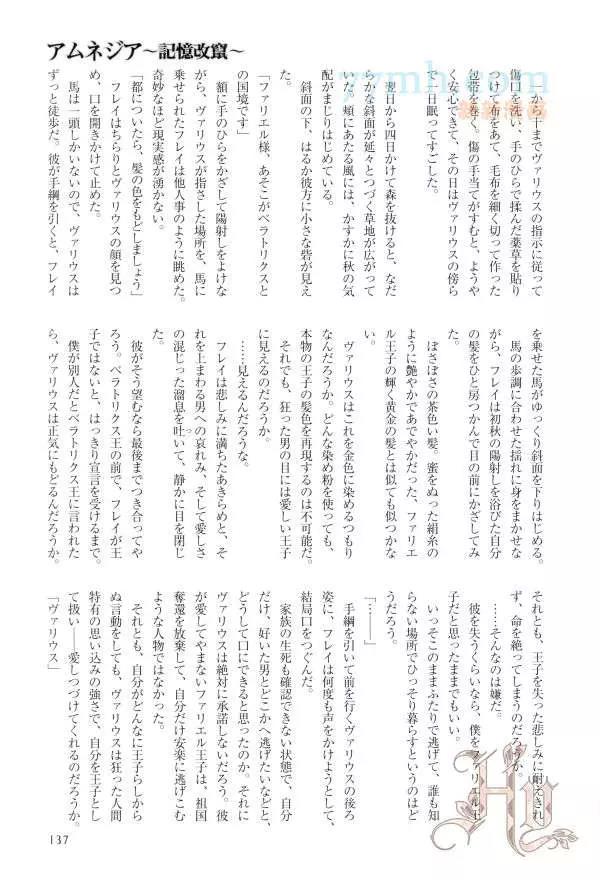 アムネジア～記憶改竄～
一から十までヴァリウスの指示に従って
傷口を洗い、手のひらで揉んだ薬草を貼り
つけて布をあて、毛布を細く切って作った
包帯を巻く。傷の手当てがすむと、ようや
く安心できて、その日はヴァリウスの傍ら
で一日眠ってすごした。
翌日から四日かけて森を抜けると、なだ
らかな斜面が延々とつづく草地が広がって
いた。頬にあたる風には、かすかに秋の気
配がまじりはじめている。
斜面の下、はるか彼方に小さな砦が見え
た。
「ファリエル様、あそこがベラトリクスと
の国境です」
額に手のひらをかざして陽射しをよけな
がら、ヴァリウスが指さした場所を、馬に
乗せられたフレイは他人事のように眺めた。
奇妙なほど現実感が湧かない。
「都についたら、髪の色をもどしましょう」
フレイはちらりとヴァリウスの顔を見つ
め、口を開きかけて止めた。
馬は一頭しかいないので、ヴァリウスは
ずっと徒歩だ。彼が手綱を引くと、フレイ
を乗せた馬がゆっくり斜面を下りはじめる。
馬の歩調に合わせた揺れに身をまかせな
がら、フレイは初秋の陽射しを浴びた自分
の髪をひと房つかんで目の前にかざしてみ
た。
ぱさぱさの茶色い髪。蜜をぬった絹糸の
ように艶やかであでやかだった、ファリエ
ル王子の輝く黄金の髪とは似ても似つかな
い。
ヴァリウスはこれを金色に染めるつもり
なんだろうか。どんな染め粉を使っても、
本物の王子の髪色を再現するのは不可能だ。
それでも、狂った男の目には愛しい王子
に見えるのだろうか。
……見えるんだろうな。
フレイは悲しみに満ちたあきらめと、そ
れを上まわる男への哀れみ、そして愛しさ
の混じった溜息を吐いて、静かに目を閉じ
た。
彼がそう望むなら最後までつき合ってや
ろう。ベラトリクス王の前で、フレイが王
子ではないと、はっきり宣言を受けるまで。
僕が別人だとベラトリクス王に言われた
ら、ヴァリウスは正気にもどるんだろうか。
それとも、王子を失った悲しみに耐えきれ
ず、命を絶ってしまうのだろうか。
……そんなのは嫌だ。
彼を失うくらいなら、僕をファリエル王
子だと思ったままでもいい。
いっそこのままふたりで逃げて、誰も知
らない場所でひっそり暮らすというのはど
うだろう。
「……」
手綱を引いて前を行くヴァリウスの後ろ
姿に、フレイは何度も声をかけようとして、
結局口をつぐんだ。
家族の生死も確認できない状態で、自分
だけ、好いた男とどこかへ逃げたいなどと、
どうして口にできると思ったのか。それに
ヴァリウスは絶対に承諾しないだろう。彼
が愛してやまないファリエル王子は、祖国
奪還を放棄して、自分だけ安楽に逃げこむ
ような人物ではなかった。
それとも、自分がどんなに王子らしから
ぬ言動をしても、ヴァリウスは狂った人間
特有の思い込みの強さで、自分を王子とし
て扱い――愛しつづけてくれるのだろうか。
「ヴァリウス」
Hy
137